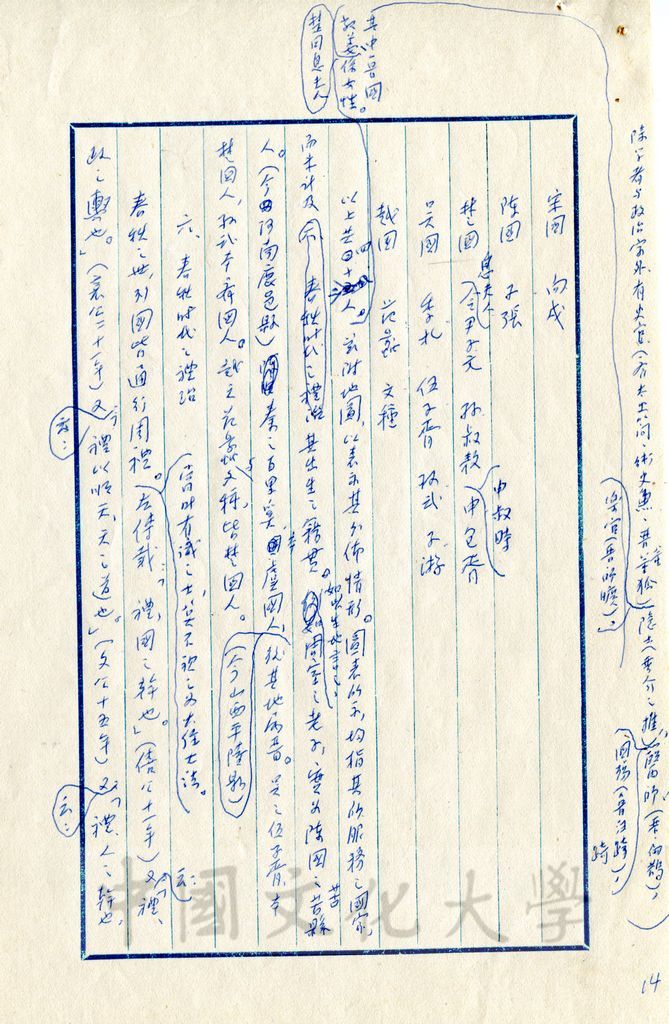 除學者与政治家外,有史官(齊太史簡、衛史魚、晉董狐)隱士(晉介之推)醫師(秦伯鵲),
樂官(晉師曠),
14
宋國 向戌
陳國 子張
楚國 息夫人 令尹子元 孫叔敖 申叔時 申包胥
吳國 季札 伍子胥 孫武 子游
越國 范蠡 文種
其中
楚國息夫人
以上共四十人。茲附地圖,以表示其分佈情形。圖表所示,均指其所服務之國家,
而未計及其出生之籍貫。如以出生地言之,周室之老子,實為陳國之苦縣
人。(今河南鹿邑縣)秦之百里奚,本虞國人,(今山西平陸縣)吳之伍子胥,本
楚國人,孫武本齊國人。越之范蠡与文種,皆楚國人。
六、春秋時代之禮治
春秋之世,列國皆通行周禮。當時有識之士,莫不視之為大經大法。左傳載:「禮,國之幹也。」(僖公十一年)又云:「禮,
政之輿也。」(襄公二十一年)又云:「禮以順天,天之道也。」(文公十五年)又云:「禮,人之幹也,
中國文化大學